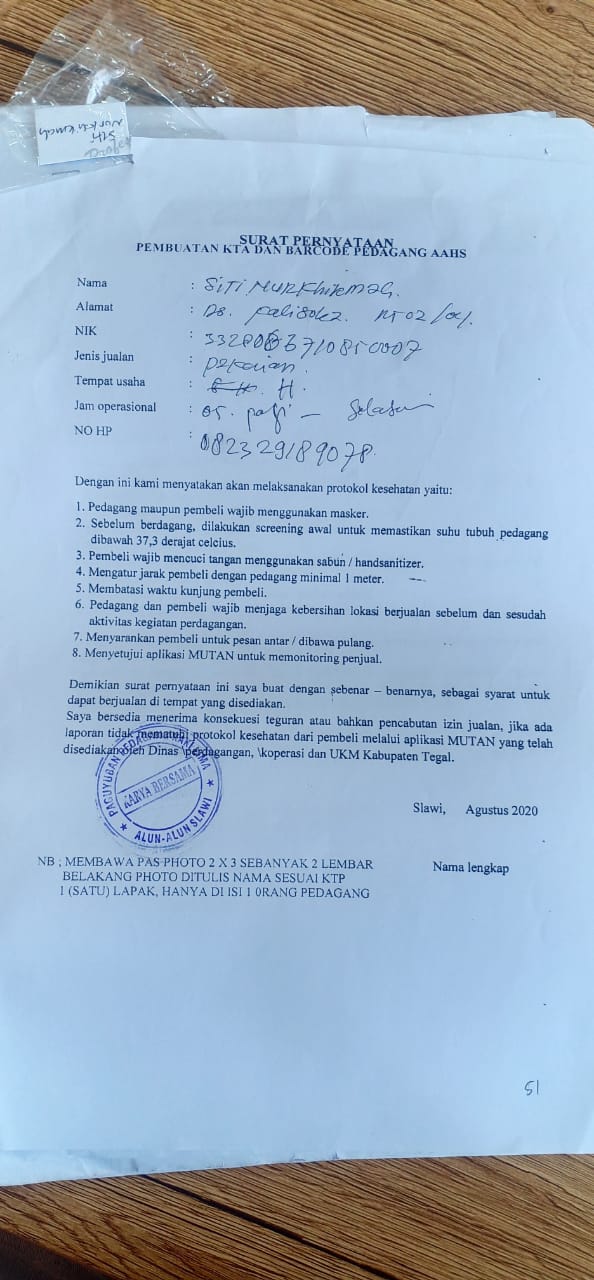 Siti
Nurkhikmah
SURAT PERNYATAAN
PEMBUATAN KTA DAN BARCODE PEDAGANG AAHS
Nama : SiTi NURKhikmah.
Alamat : Ds. Kalisoka. RT 02/01.
NIK :
Jenis jualan : pakaian.
Tempat usaha : H.
Jam operasional : 05. pagi – Selasai
NO HP : 082329189078.
Dengan ini kami menyatakan akan melaksanakan protokol kesehatan yaitu:
1. Pedagang maupun pembeli wajib menggunakan masker.
2. Sebelum berdagang, dilakukan screening awal untuk memastikan suhu tubuh pedagang
dibawah 37,3 derajat celcius.
3. Pembeli wajib mencuci tangan menggunakan sabun / handsanitizer.
4. Mengatur jarak pembeli dengan pedagang minimal 1 meter.
5. Membatasi waktu kunjung pembeli.
6. Pedagang dan pembeli wajib menjaga kebersihan lokasi berjualan sebelum dan sesudah
aktivitas kegiatan perdagangan.
7. Menyarankan pembeli untuk pesan antar / dibawa pulang.
8. Menyetujui aplikasi MUTAN untuk memonitoring penjual.
Demikian surat pernyataan ini saya buat dengan sebenar – benarnya, sebagai syarat untuk
dapat berjualan di tempat yang disediakan.
Saya bersedia menerima konsekuesi teguran atau bahkan pencabutan izin jualan, jika ada
laporan tidak mematuhi protokol kesehatan dari pembeli melalui aplikasi MUTAN yang telah
disediakan oleh Dinas \perdagangan, \koperasi dan UKM Kabupaten Tegal.
PAGUYUBAN PEDAGANG KAKI LIMA
KARYA BERSAMA
ALUN-ALUN SLAWI
Slawi, Agustus 2020
NB ; MEMBAWA PAS PHOTO 2 X 3 SEBANYAK 2 LEMBAR
BELAKANG PHOTO DITULIS NAMA SESUAI KTP
1 (SATU) LAPAK, HANYA DI ISI 1 0RANG PEDAGANG
Nama lengkap
51